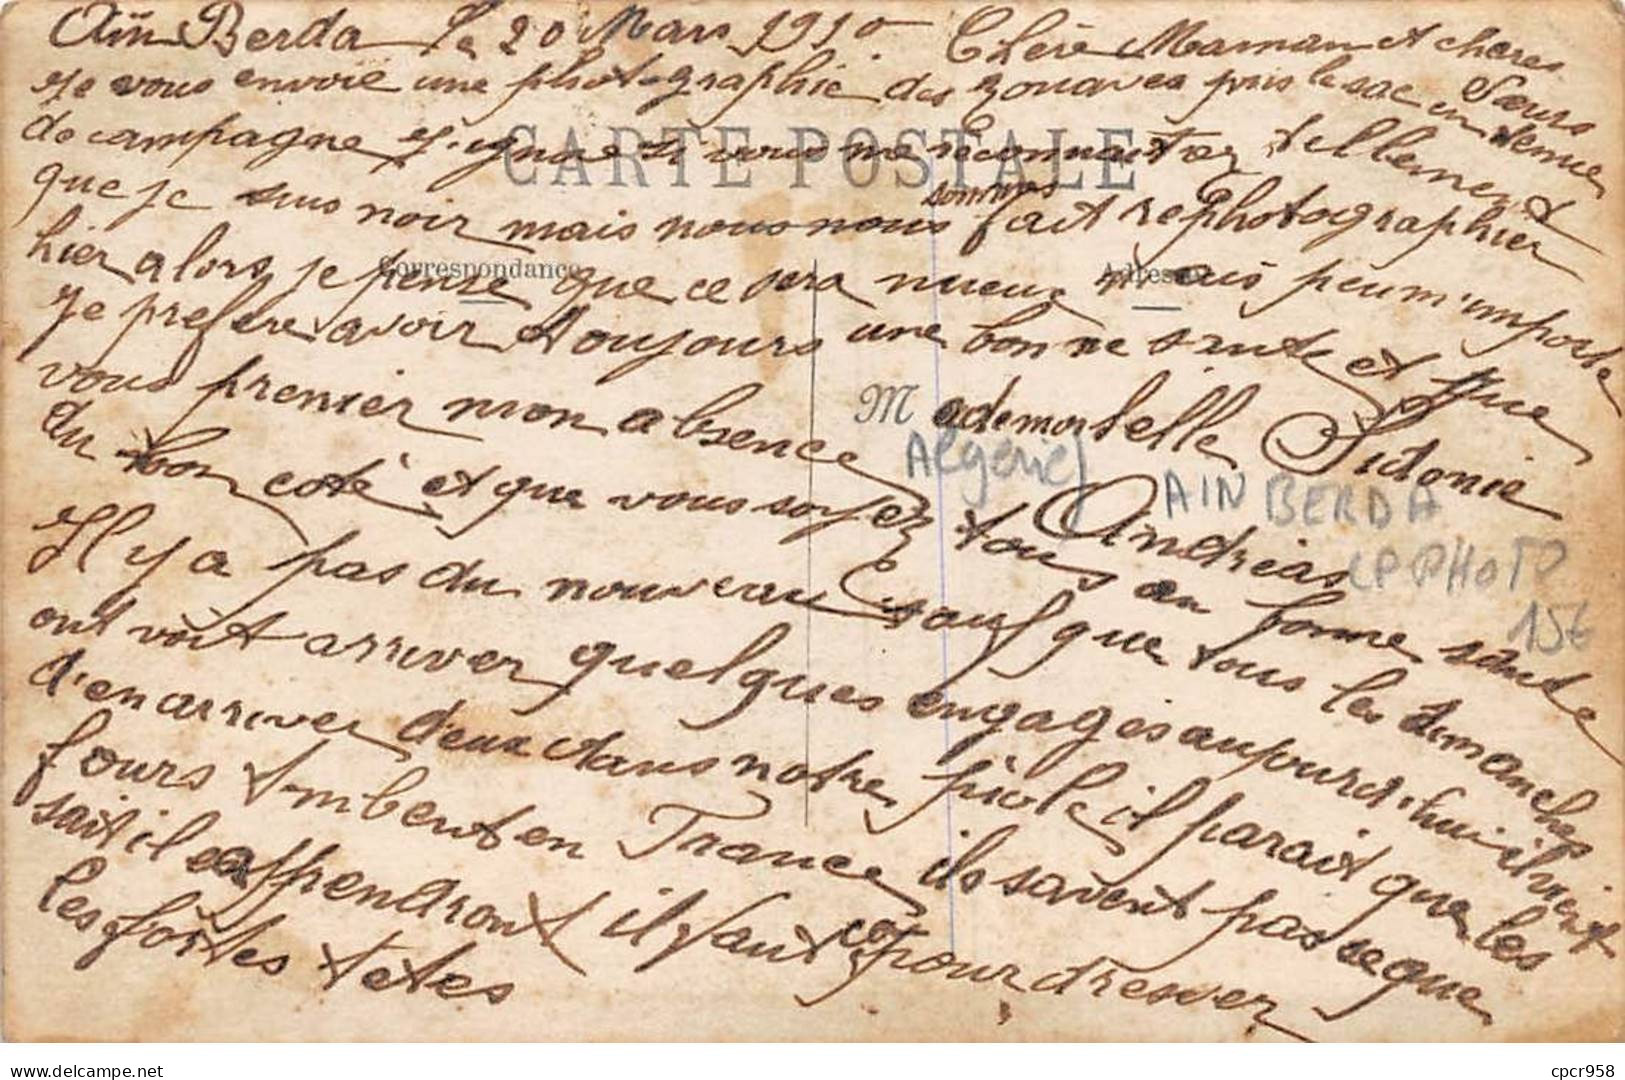 Ain Berda le 20 Mars 1910 Chère Maman et chères Sœurs
Je vous envoie une photographie des zouaves pris le sac en tenue
de campagne J'ignore si vous me reconnaitrez tellement
que je suis noir mais nous nous sommes fait rephotographier
hier alors je pense que ce sera mieux mais peu m'importe
Je prefere avoir toujours une bonne sante et que
vous premier mon absence
du bon coté et que vous soyez tous en bonne sante
Il y a pas du nouveau sauf que tous les dimanches
ont voit arriver quelques engagés aujourd'hui il vient
d'en arriver deux dans notre piole il parait que les
fours tombent en France ils savent pas se que
sait il apprendront il faut ca pour dresser
les fortes tetes
CARTE POSTALE
Correspondance
Adresse
Mademoiselle Sidonie
Andréas
Algerie
AIN BERDA
CP PHOTO
15€
cpcr958